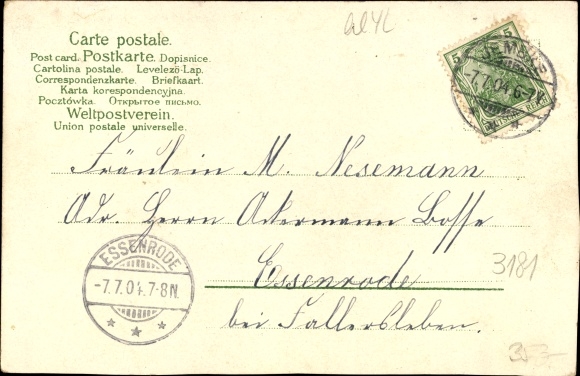 Carte postale.
Post card. Postkarte. Dopisnice.
Cartolina postale. Levelező-Lap.
Correspondenzkarte. Briefkaart.
Karta korespondencyjna.
Pocztówka. Открытое письмо.
Weltpostverein.
Union postale universelle.
5 5
7.7.04. 6-7N.
DEUTSCHES REICH
Fräulein M. Nesemann
Adr. Herrn Ackermann Bosse
Essenrode
bei Fallersleben.
ESSENRODE
-7.7.04. 7-8N.
3181